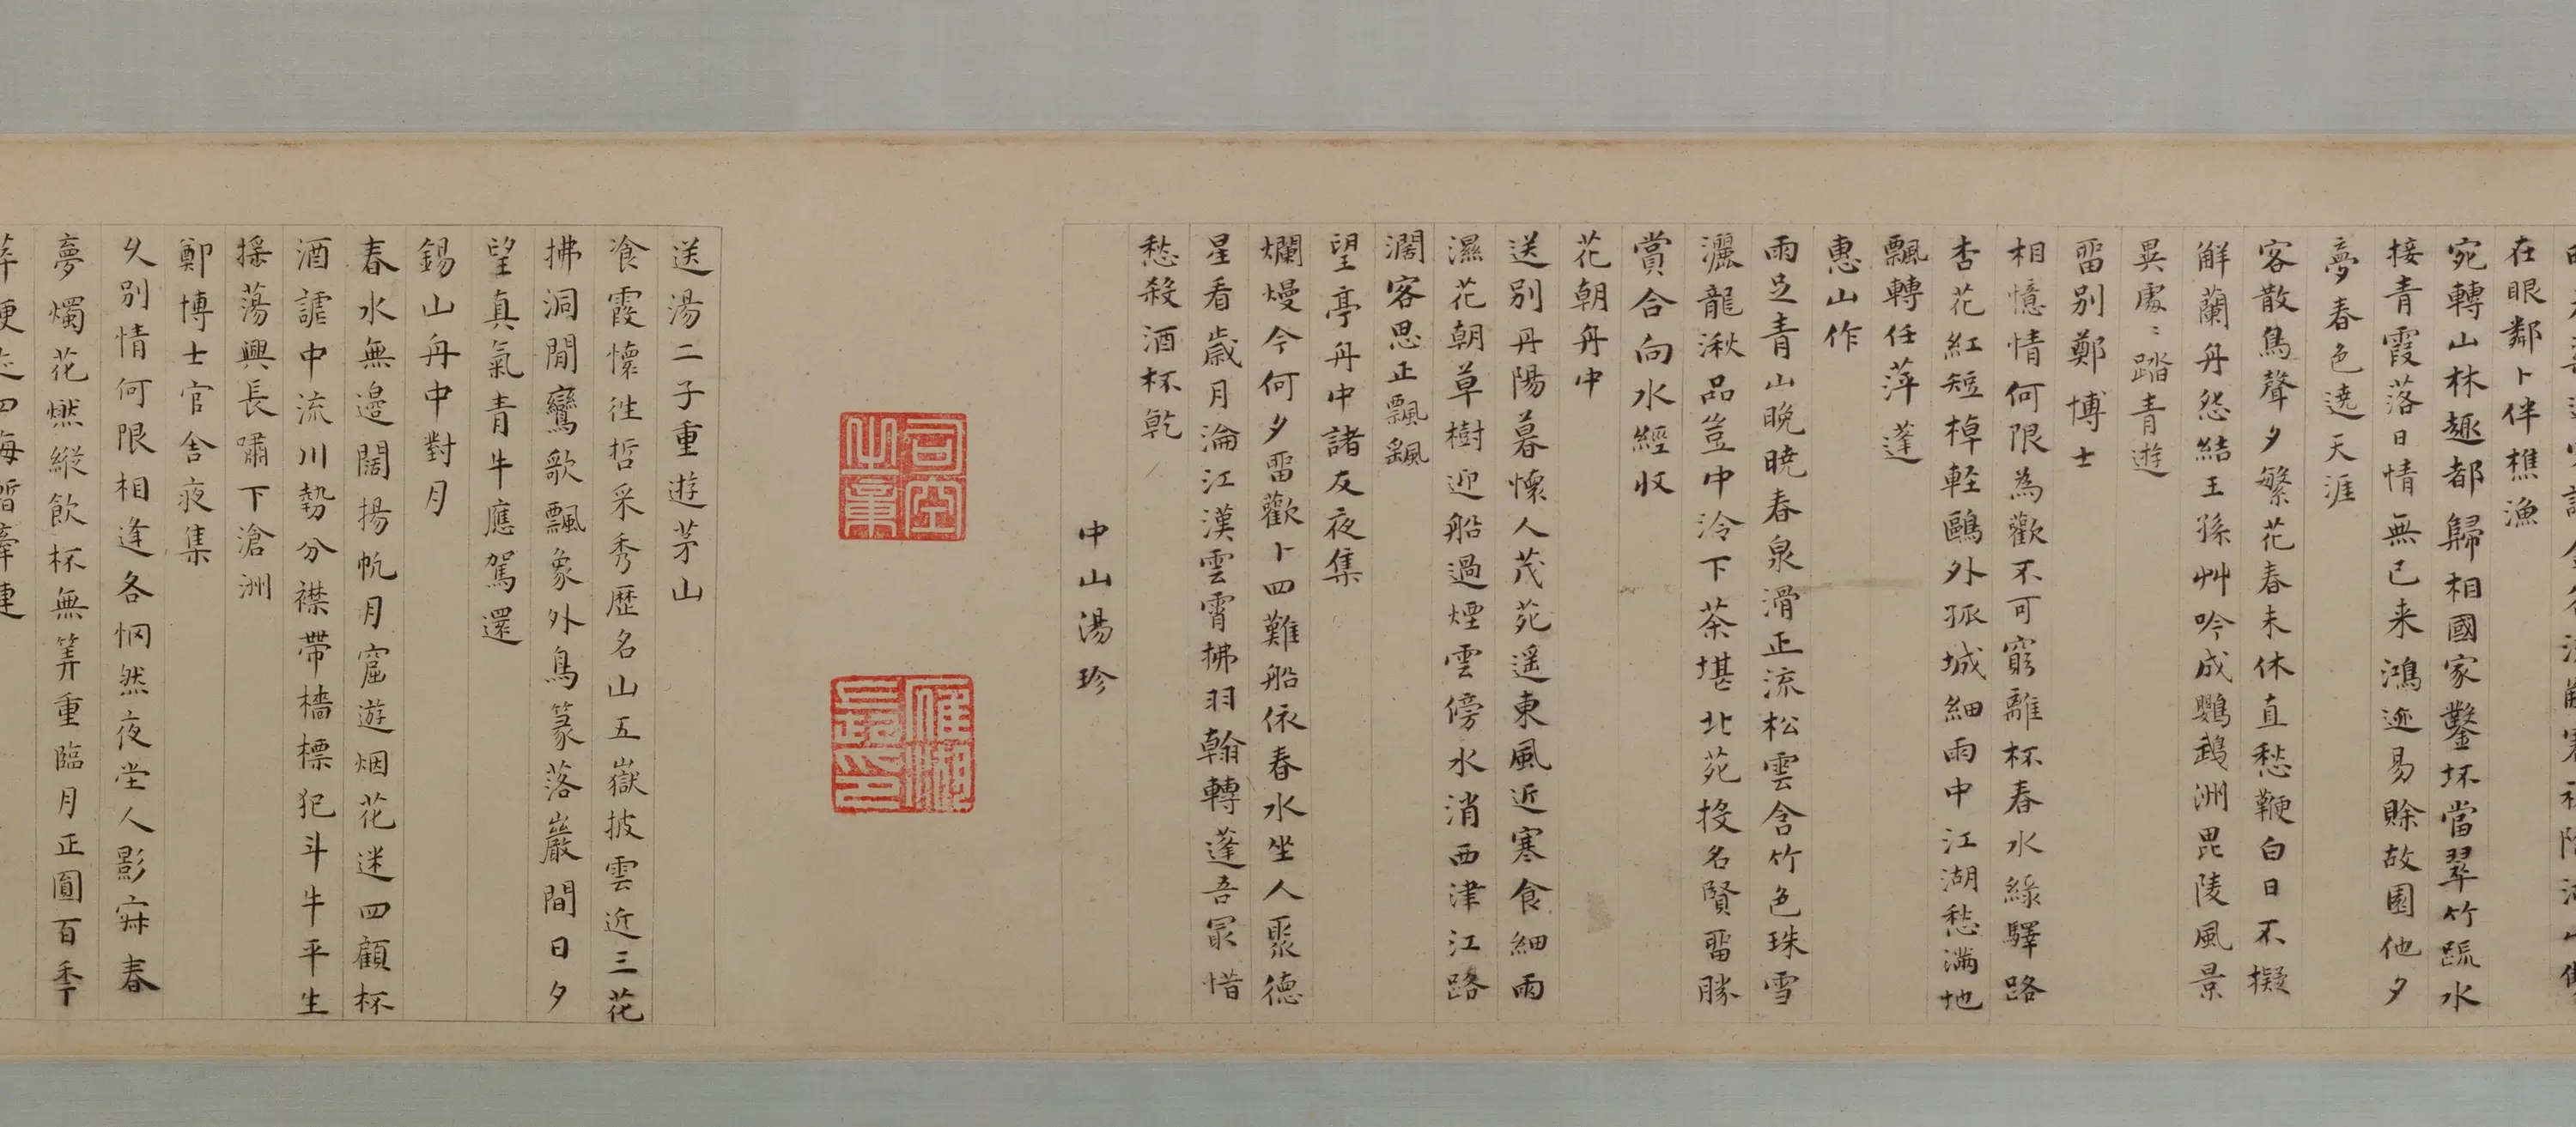 在眼鄰卜伴樵漁
宛轉山林趣都歸相國家鑿坏當翠竹疏水
接青霞落日情無已来鴻迹易賒故園他夕
夢春色遶天涯
客散鳥聲夕繁花春未休直愁鞭白日不擬
解蘭舟怨結王孫艸吟成鸚鵡洲毘陵風景
異處〻踏青遊
畱別鄭博士
相憶情何限為歡不可窮離杯春水綠驛路
杏花紅短棹輕鷗外孤城細雨中江湖愁滿地
飄轉任萍蓬
惠山作
雨足青山晚曉春泉滑正流松雲含竹色珠雪
灑龍湫品豈中泠下茶堪北苑投名賢畱勝
賞合向水經收
花朝舟中
送別丹陽暮懷人茂苑遥東風近寒食細雨
濕花朝草樹迎船過煙雲傍水消西津江路
濶客思正飄颻
望亭舟中諸友夜集
爛熳今何夕畱歡卜四難船依春水坐人聚德
星看歲月淪江漢雲霄拂羽翰轉蓬吾最惜
愁殺酒杯乾
中山湯珍
司空之章
雁湖
送湯二子重遊茅山
飡霞懷往哲采秀歷名山五嶽披雲近三花
拂洞閒鸞歌飄象外鳥篆落巖間日夕
望真氣青牛應駕還
錫山舟中對月
春水無邊闊揚帆月窟遊烟花迷四顧杯
酒謔中流川勢分襟帶檣標犯斗牛平生
搖蕩興長嘯下滄洲
鄭博士官舍夜集
久別情何限相逢各惘然夜堂人影寂春
夢燭花燃縱飲杯無筭重臨月正圓百年